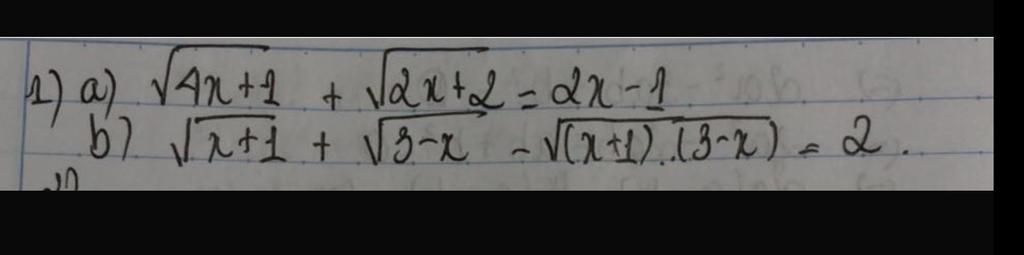 1) a) √(4x+1) + √(2x+2) = 2x-1
b) √(x+1) + √(3-x) - √((x+1).(3-x)) = 2.